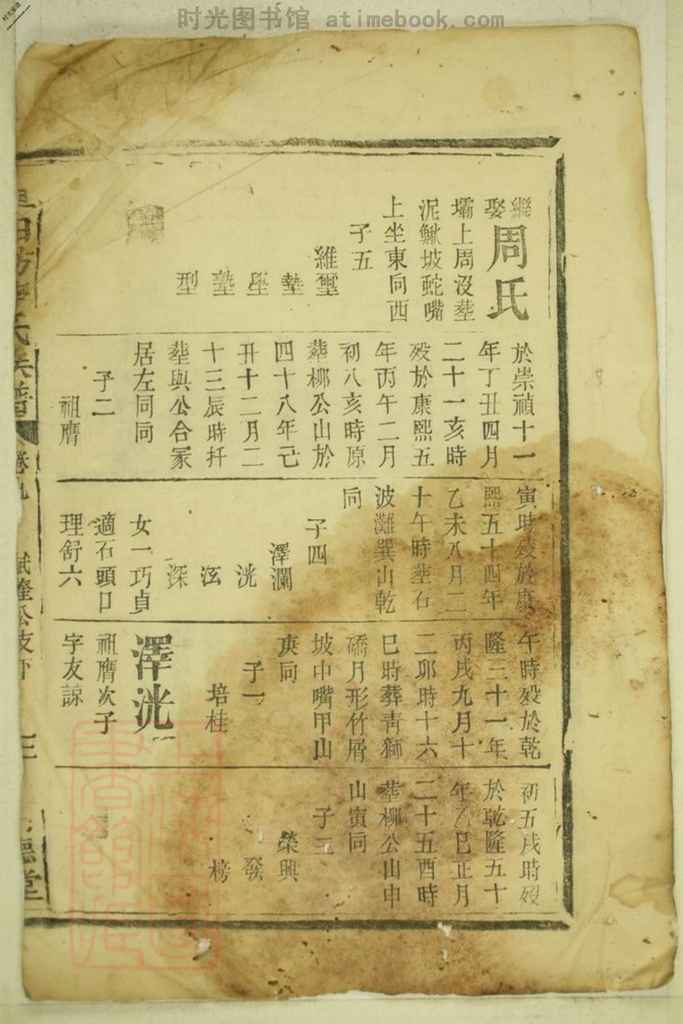 时光图书馆 atimebook.com
繼
娶周氏
壩上周沒塟
泥鰍坡蛇嘴
上坐東向西
子五
維璽
墊
垕
塾
型
於崇禎十一
年丁丑四月
二十一亥時
歿於康熙五
年丙午二月
初八亥時原
葬柳公山於
四十八年己
丑十二月二
十三辰時扦
塟與公合冢
居左同向
子二
祖膺
寅時歿於康
熙五十四年
乙未八月二
十午時塟石
波灘巽山乾
向
子四
澤瀾
洸
泫
深
女一巧貞
適石頭口
理舒六
午時歿於乾
隆三十一年
丙戌九月十
二卯時十六
巳時葬靑獅
礄月形竹屑
坡中嘴甲山
庚向
子一
培桂
澤洸
祖膺次子
字友諒
初五戌時歿
於乾隆五十
年乙巳正月
二十五酉時
塟柳公山中
山寅向
子三
榮興
發
榜
氏族譜
卷九
公支下
三
德堂